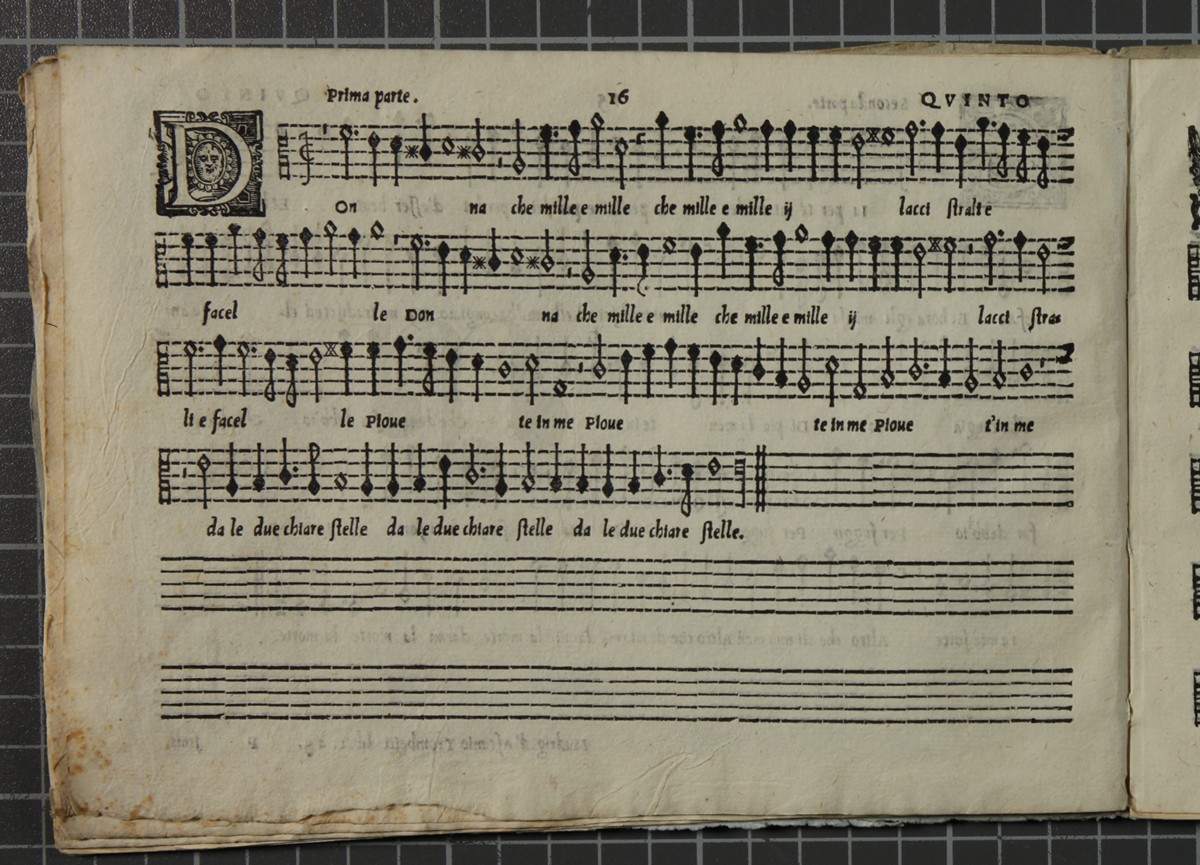 Prima parte. 16 QVINTO
DOn na che mille e mille che mille e mille ij lacci ſtral i e
facel le Don na che mille e mille che mille e mille ij lacci ſtra⸗
li e facel le Pioue te in me Pioue te in me Pioue t'in me
da le due chiare ſtelle da le due chiare ſtelle da le due chiare ſtelle.